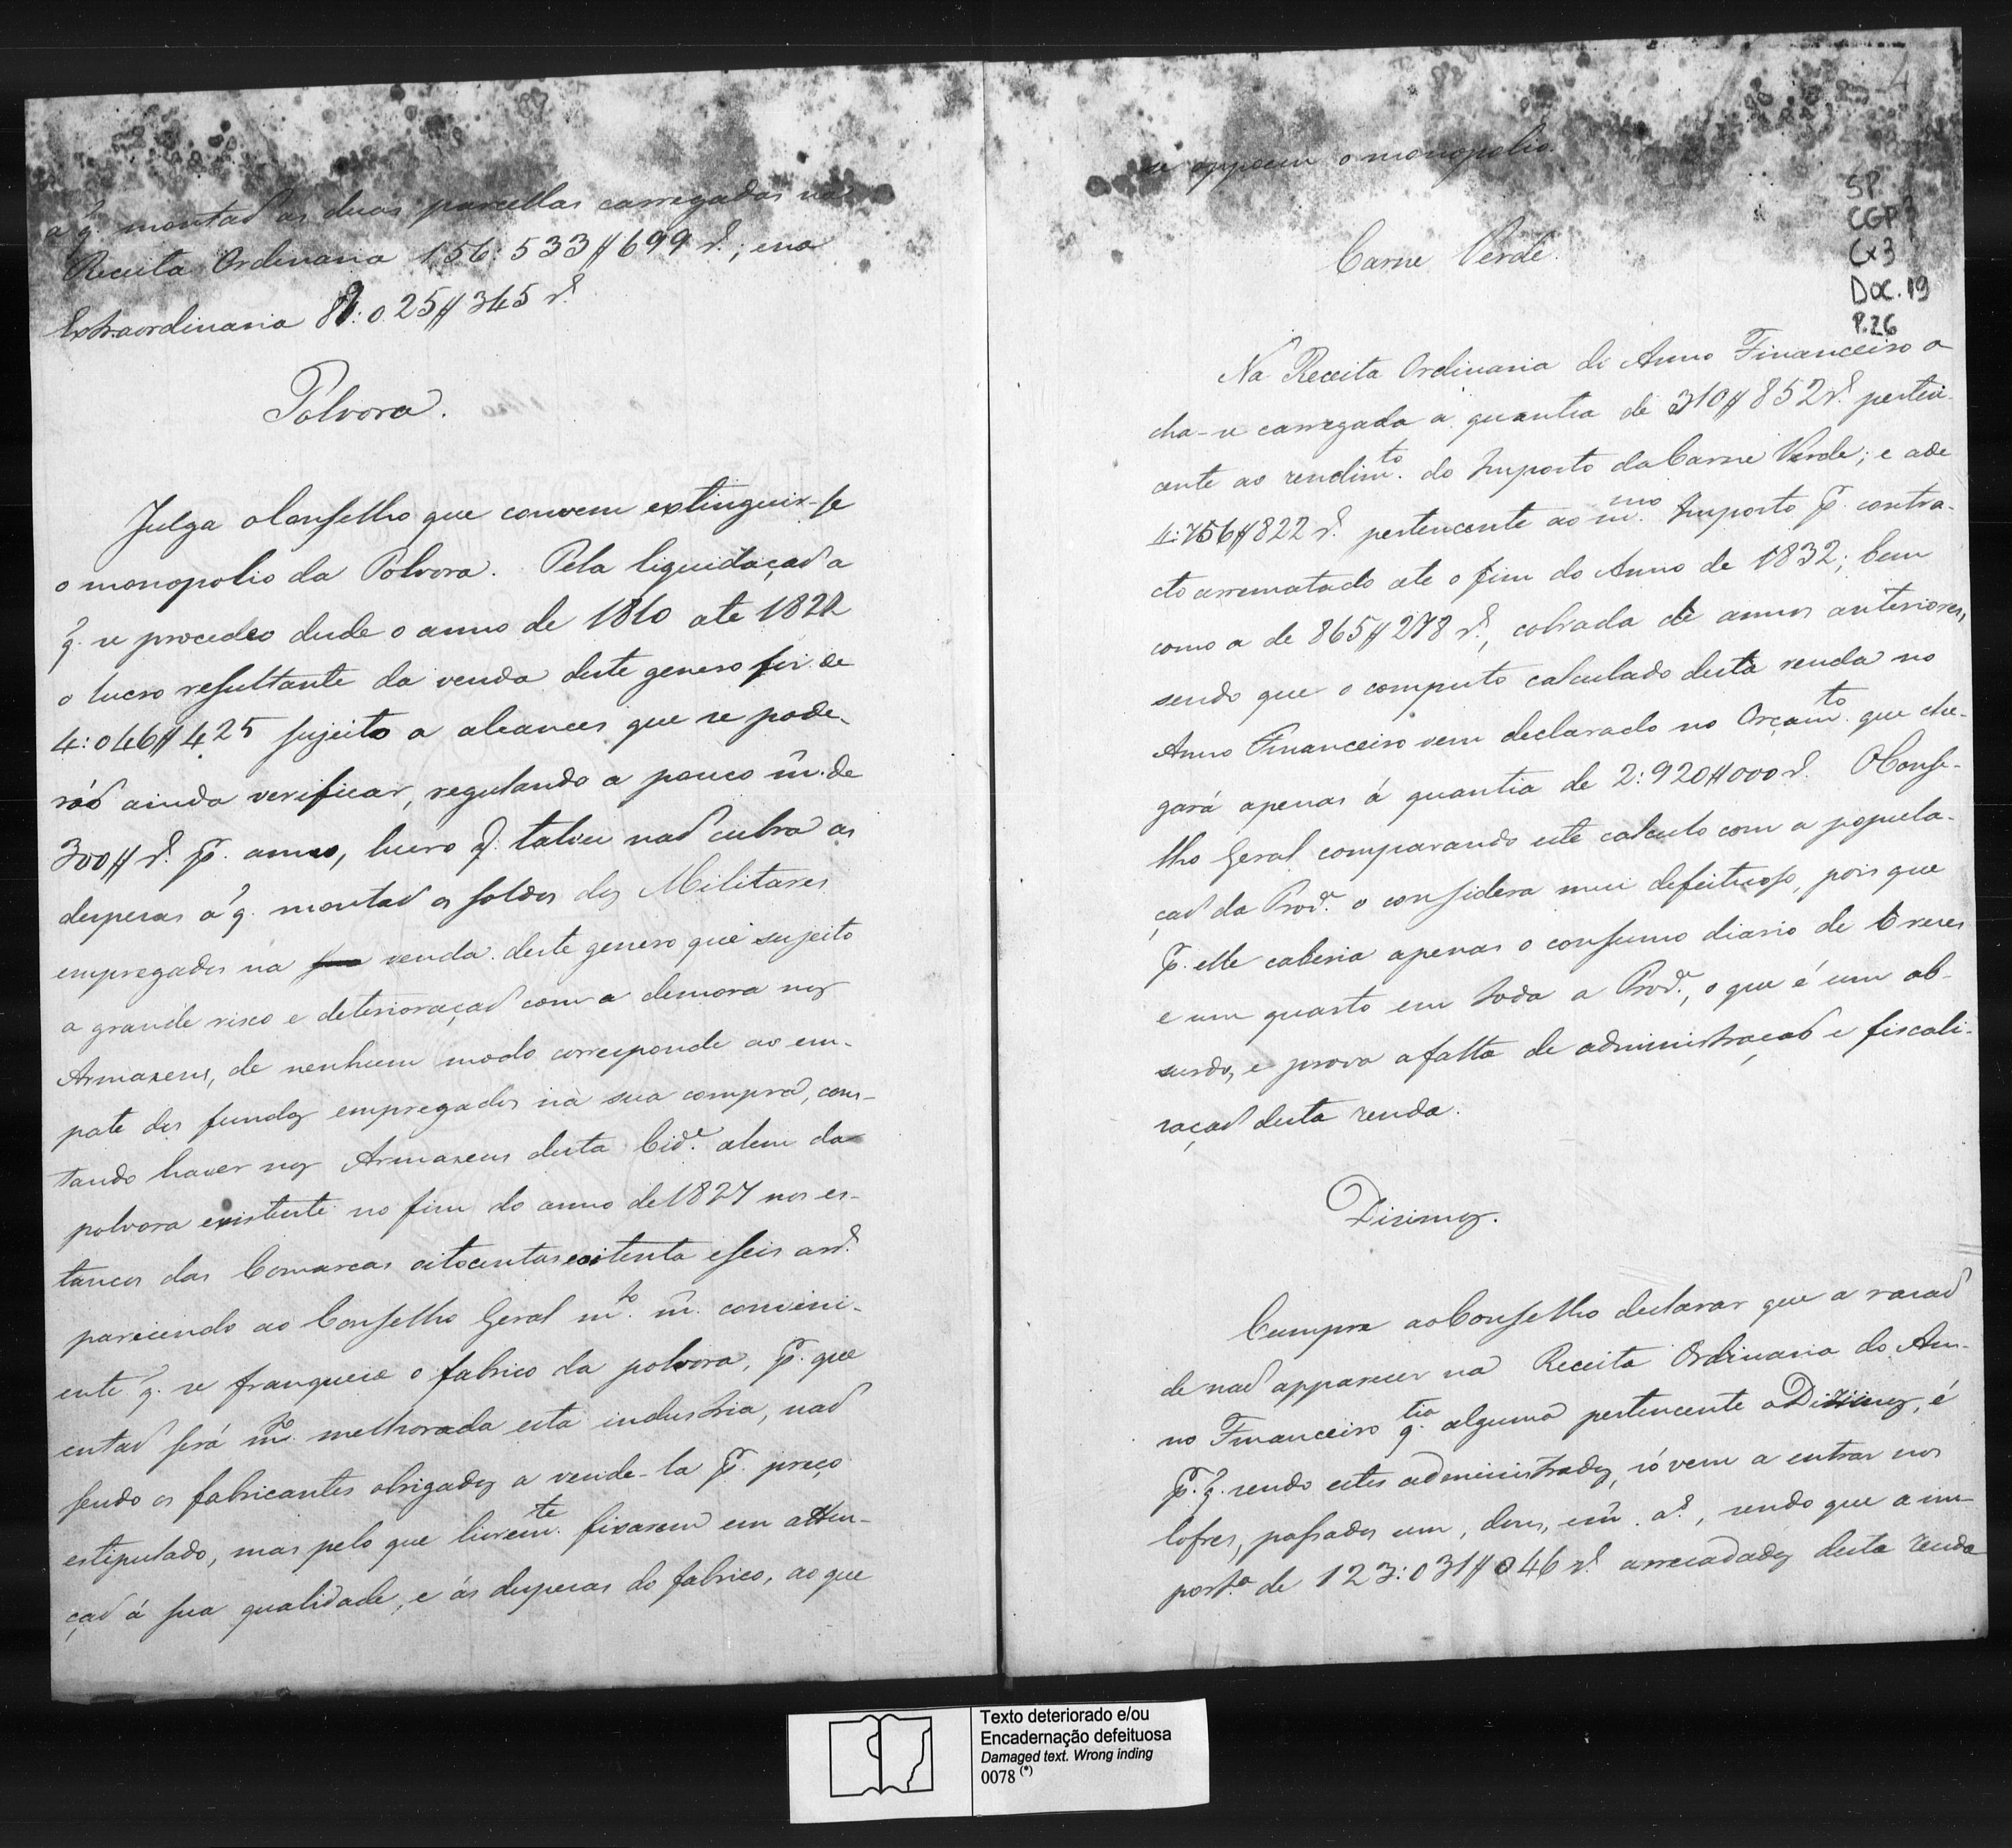 a q. montaõ as duas parcellas carregadas na
Receita Ordenaria 156:533$699 r.s; e na
Extraordinaria 81:025$345 r.s
Polvora.
Julga o Conselho que convem extinguir-se
o monopolio da Polvora. Pela liquidaçaõ a
q. se procedeo desde o anno de 1810 ate 1822
o lucro resultante da venda deste genero foi de
4:046$425 sujeito a alcances que se pode-
ráõ ainda verificar, regulando a pouco m. de
300$ r.s p. anno, lucro q. talvez naõ cubra as
despezas a q. montaõ os soldos dos Militares
empregados na venda deste genero que sujeito
a grande risco e deterioraçaõ com a demora nos
Armazens, de nenhum modo corresponde ao em-
pate dos fundos empregados na sua compra, cons-
tando haver nos Armazens desta Cid.e alem da
polvora existente no fim do anno de 1827 nos es-
tancos das Comarcas oitocentas e oitenta e seis arr.s
parecendo ao Conselho Geral m.to m. conveni-
ente q. se franqueie o fabrico da polvora, p. que
entaõ será m.to melhorada esta industria, naõ
sendo os fabricantes obrigados a vende-la p. preço
estipulado, mas pelo que livrem.te fixarem em atten-
çaõ á sua qualidade, e ás despezas do fabrico, ao que
4
se oppoem o monopolio.
SP
CGP7
Cx3
Doc. 19
P.26
Carne Verde.
Na Receita Ordinaria do Anno Financeiro a
cha-se carregada a quantia de 310$852 r.s perten-
cente ao rendim.to do Imposto da Carne Verde; e a de
4:756$822 r.s pertencente ao m.mo Imposto p. contra-
cto arrematado ate o fim do Anno de 1832; bem
como a de 865$278 r.s, cobrada de annos anteriores,
sendo que o computo calculado desta renda no
Anno Financeiro vem declarado no Orçam.to que che-
gará apenas á quantia de 2:920$000 r.s O Conse-
lho Geral comparando este calculo com a popula-
çaõ da Prov.a o considera mui defeituoso, pois que
p. elle caberia apenas o consumo diario de 6 rezes
e um quarto em toda a Prov.a, o que é um ab-
surdo, e prova a falta de administraçaõ e fiscali-
saçaõ desta renda.
Dizimos.
Cumpre ao Conselho declarar que a razaõ
de naõ apparecer na Receita Ordinaria do An-
no Financeiro q.tia alguma pertencente a Dizimos, é
p. q. sendo estes administrados, só vem a entrar nos
Cofres, passados um, dous, e m. a.s, sendo que a im-
port.a de 123:031$046 r.s arrecadados desta renda
Texto deteriorado e/ou
Encadernação defeituosa
Damaged text. Wrong inding
0078 (*)